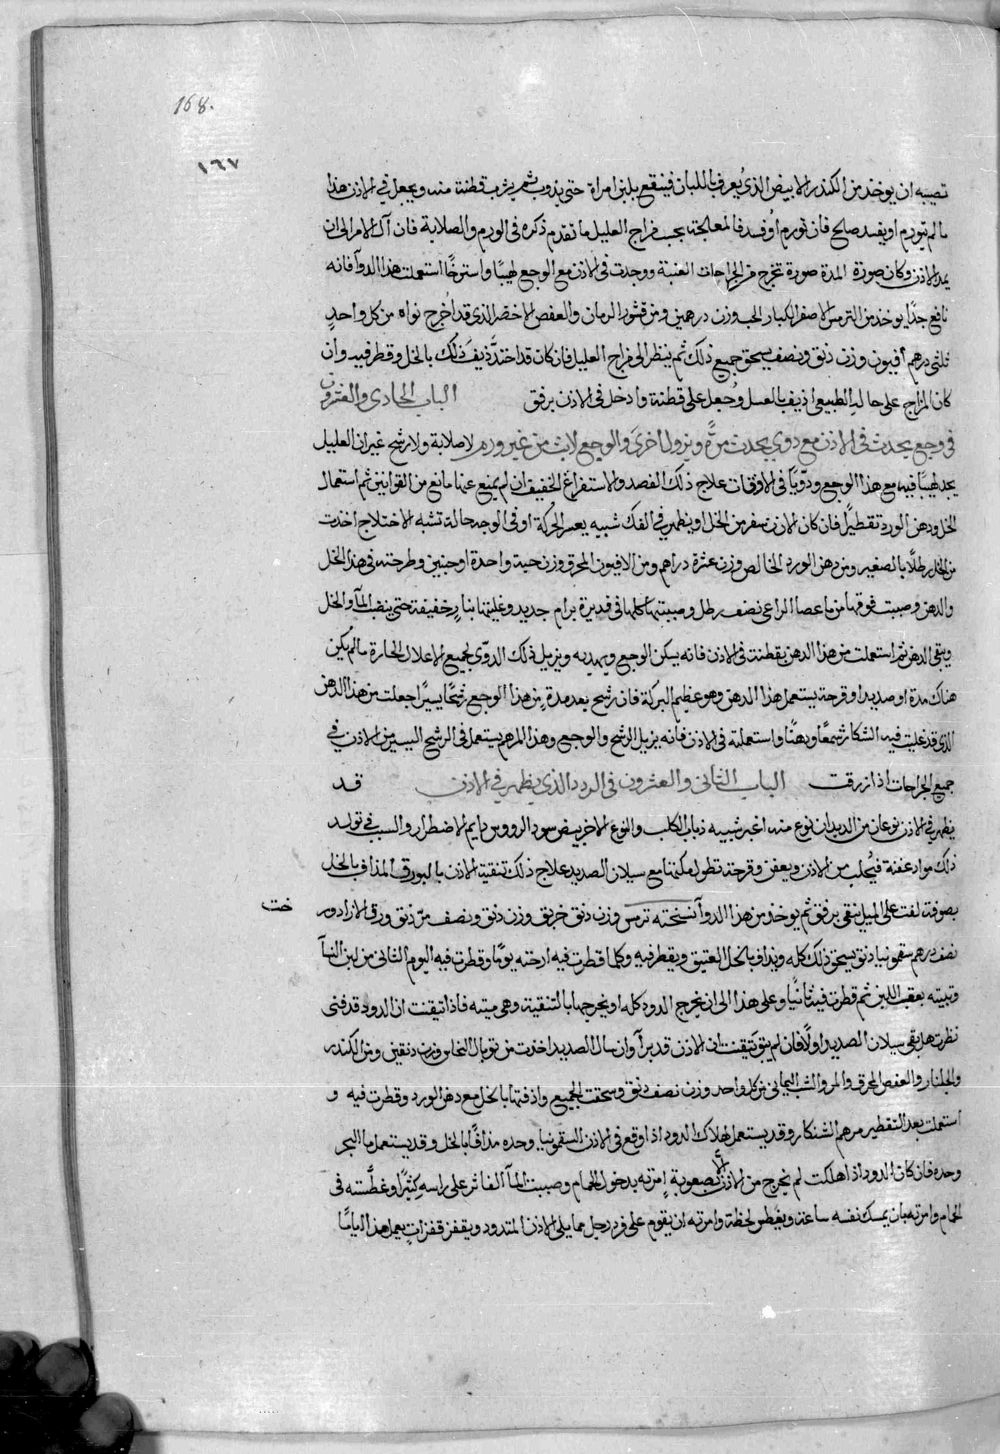 168.
١٦٧
تصيبه ان يوخذ من الكندر الابيض الذي يُعرف باللبان فينقع بلبن امراة حتى يذوب ثم يشرب قطنة منه ويجعل في الاذن هذا
ما لم يتورم او يفسد صلح فان تورم او فسد فالمعالجة بحسب مزاج العليل ما تقدم ذكره في الورم والصلابة فان آل الامر الى ان
يمد الاذن وكان صورة المدة صورة تخرج من الجراحات العفنة ووجدت في الاذن مع الوجع لهيبًا واسترخًا استعملت هذا الدوآ فانه
نافع جدًا يوخذ من الترمس الاصفر الكبار الحب وزن درهمين ومن قشور الرمان والعفص الاخضر الذي قد اخرج نواه من كل واحدٍ
ثلثي درهم أفيون وزن دنق ونصف يسحق جميع ذلك ثم ينظر الى مزاج العليل فان كان قد احتدَّ ذيف ذلك بالخل وقطر فيه وان
كان المزاج على حاله الطبيعي اذيف بالعسل وجُعل على قطنة وادخل في الاذن برفق الباب الحادي والعشرون
في وجع يحدث في الاذن مع دوي يحدث مرَّة ويزول اخرى والوجع لابث من غير ورم ولا صلابة ولا رشح غير ان العليل
يجد لهيبًا فيه مع هذا الوجع ودوّيًا في الاوقات علاج ذلك الفصد والاستفراغ الخفيف ان لم يمنع عنها مانع من القوانين ثم استعمال
الخل ودهن الورد تقطيرًا فان كان الاذن ينفر من الخل او يظهر في الفك شبيه بعسر الحركة او في الوجه حالة تشبه الاختلاج اخذت
من الخل رطلًا بالصغير ومن دهن الورد الخالص وزن عشرة دراهم ومن الافيون المحرق وزن حبة واحدة او حبتين وطرحته في هذا الخل
والدهن وصببت فوقها من ماعصا الراعي نصف رطل وصببتها كلها في قديرة برام جديد وغليتها بنارٍ خفيفة حتى ينضب المآ والخل
ويبقى الدهن ثم استعملت من هذا الدهن بقطنة في الاذن فانه يسكن الوجع ويهديه ويزيل ذلك الدوّي لجميع الاعلال الحارة ما لم يكن
هناك مدة او صديد او قرحة يستعمل هذا الدهن وهو عظيم البركة فان رشح بعد مدة من هذا الوجع رشحًا يسيرًا جعلت من هذا الدهن
الذي قد غليت فيه الشنكار شمعًا ودهنًا واستعملته في الاذن فانه يزيل الرشح والوجع وهذا المرهم يستعمل في الرشح اليسير من الاذن في
جميع الجراحات اذا زرقت الباب الثاني والعشرون في الدود الذي يظهر في الاذن قد
يظهر في الاذن نوعان من الديدان نوع منه اغبر شبيه ذباب الكلب والنوع الاخر بيض سود الرووس دايم الاضطراب والسبب في تولد
ذلك مواد عفنة فيُحلب من الاذن ويعفن وقرحة تطول مكثها مع سيلان الصديد علاج ذلك تنقية الاذن بالبورق المذاف بالخل
بصوفة لفت على الميل ينقى برفق ثم يوخذ من هذا الدوآ نسخته ترمس وزن دنق خربق وزن دنق ونصف مرّ دنق ورق الازادرخت
نصف درهم سقمونيا دنق يسحق ذلك كله ويذاف بالخل العتيق ويقطر فيه وكلما قطرت فيه ارحته يومًا وقطرت فيه اليوم الثاني من لبن النسآ
وتبيته بعقب اللبن ثم قطرت فيه ثانيًا وعلى هذا الى ان يخرج الدود كله او يخرجها بالتنقية وهي ميتة فاذا تيقنت ان الدود قد فنى
نظرت هل بقي سيلان الصديد اولًا فان لم يبق تيقنت ان الاذن قد برأ وان سال الصديد اخذت من توبال النحاس وزن دنقين ومن الكندر
والجلنار والعفص المحرق والمر والشب اليماني من كل واحد وزن نصف دنق وسحقت الجميع واذفتها بالخل مع دهن الورد وقطرت فيه و
استعملت بعد التقطير مرهم الشنكار وقد يستعمل لهلاك الدود اذا وقع في الاذن السقمونيا وحده مذافًا بالخل وقد يستعمل ما البحر
وحده فان كان الدود اذا هلكت لم يخرج من الاذن الا بصعوبة امرته بدخول الحمام وصببت المآ الفاتر على راسه كثيرًا وغطَّسته في
الحمام وامرته بان يمسك نفسه ساعة ويغطس لحظة وامرته ان يقوم على فرد رجل مما يلي الاذن المتدود ويقفز قفزات يعمل هذا ايامًا